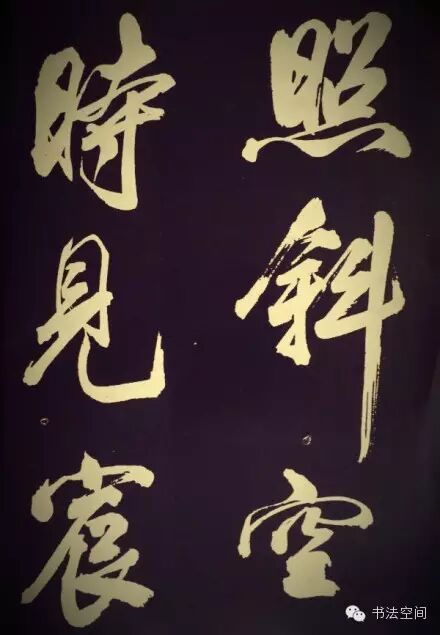 照斜空
時見宸
书法空间